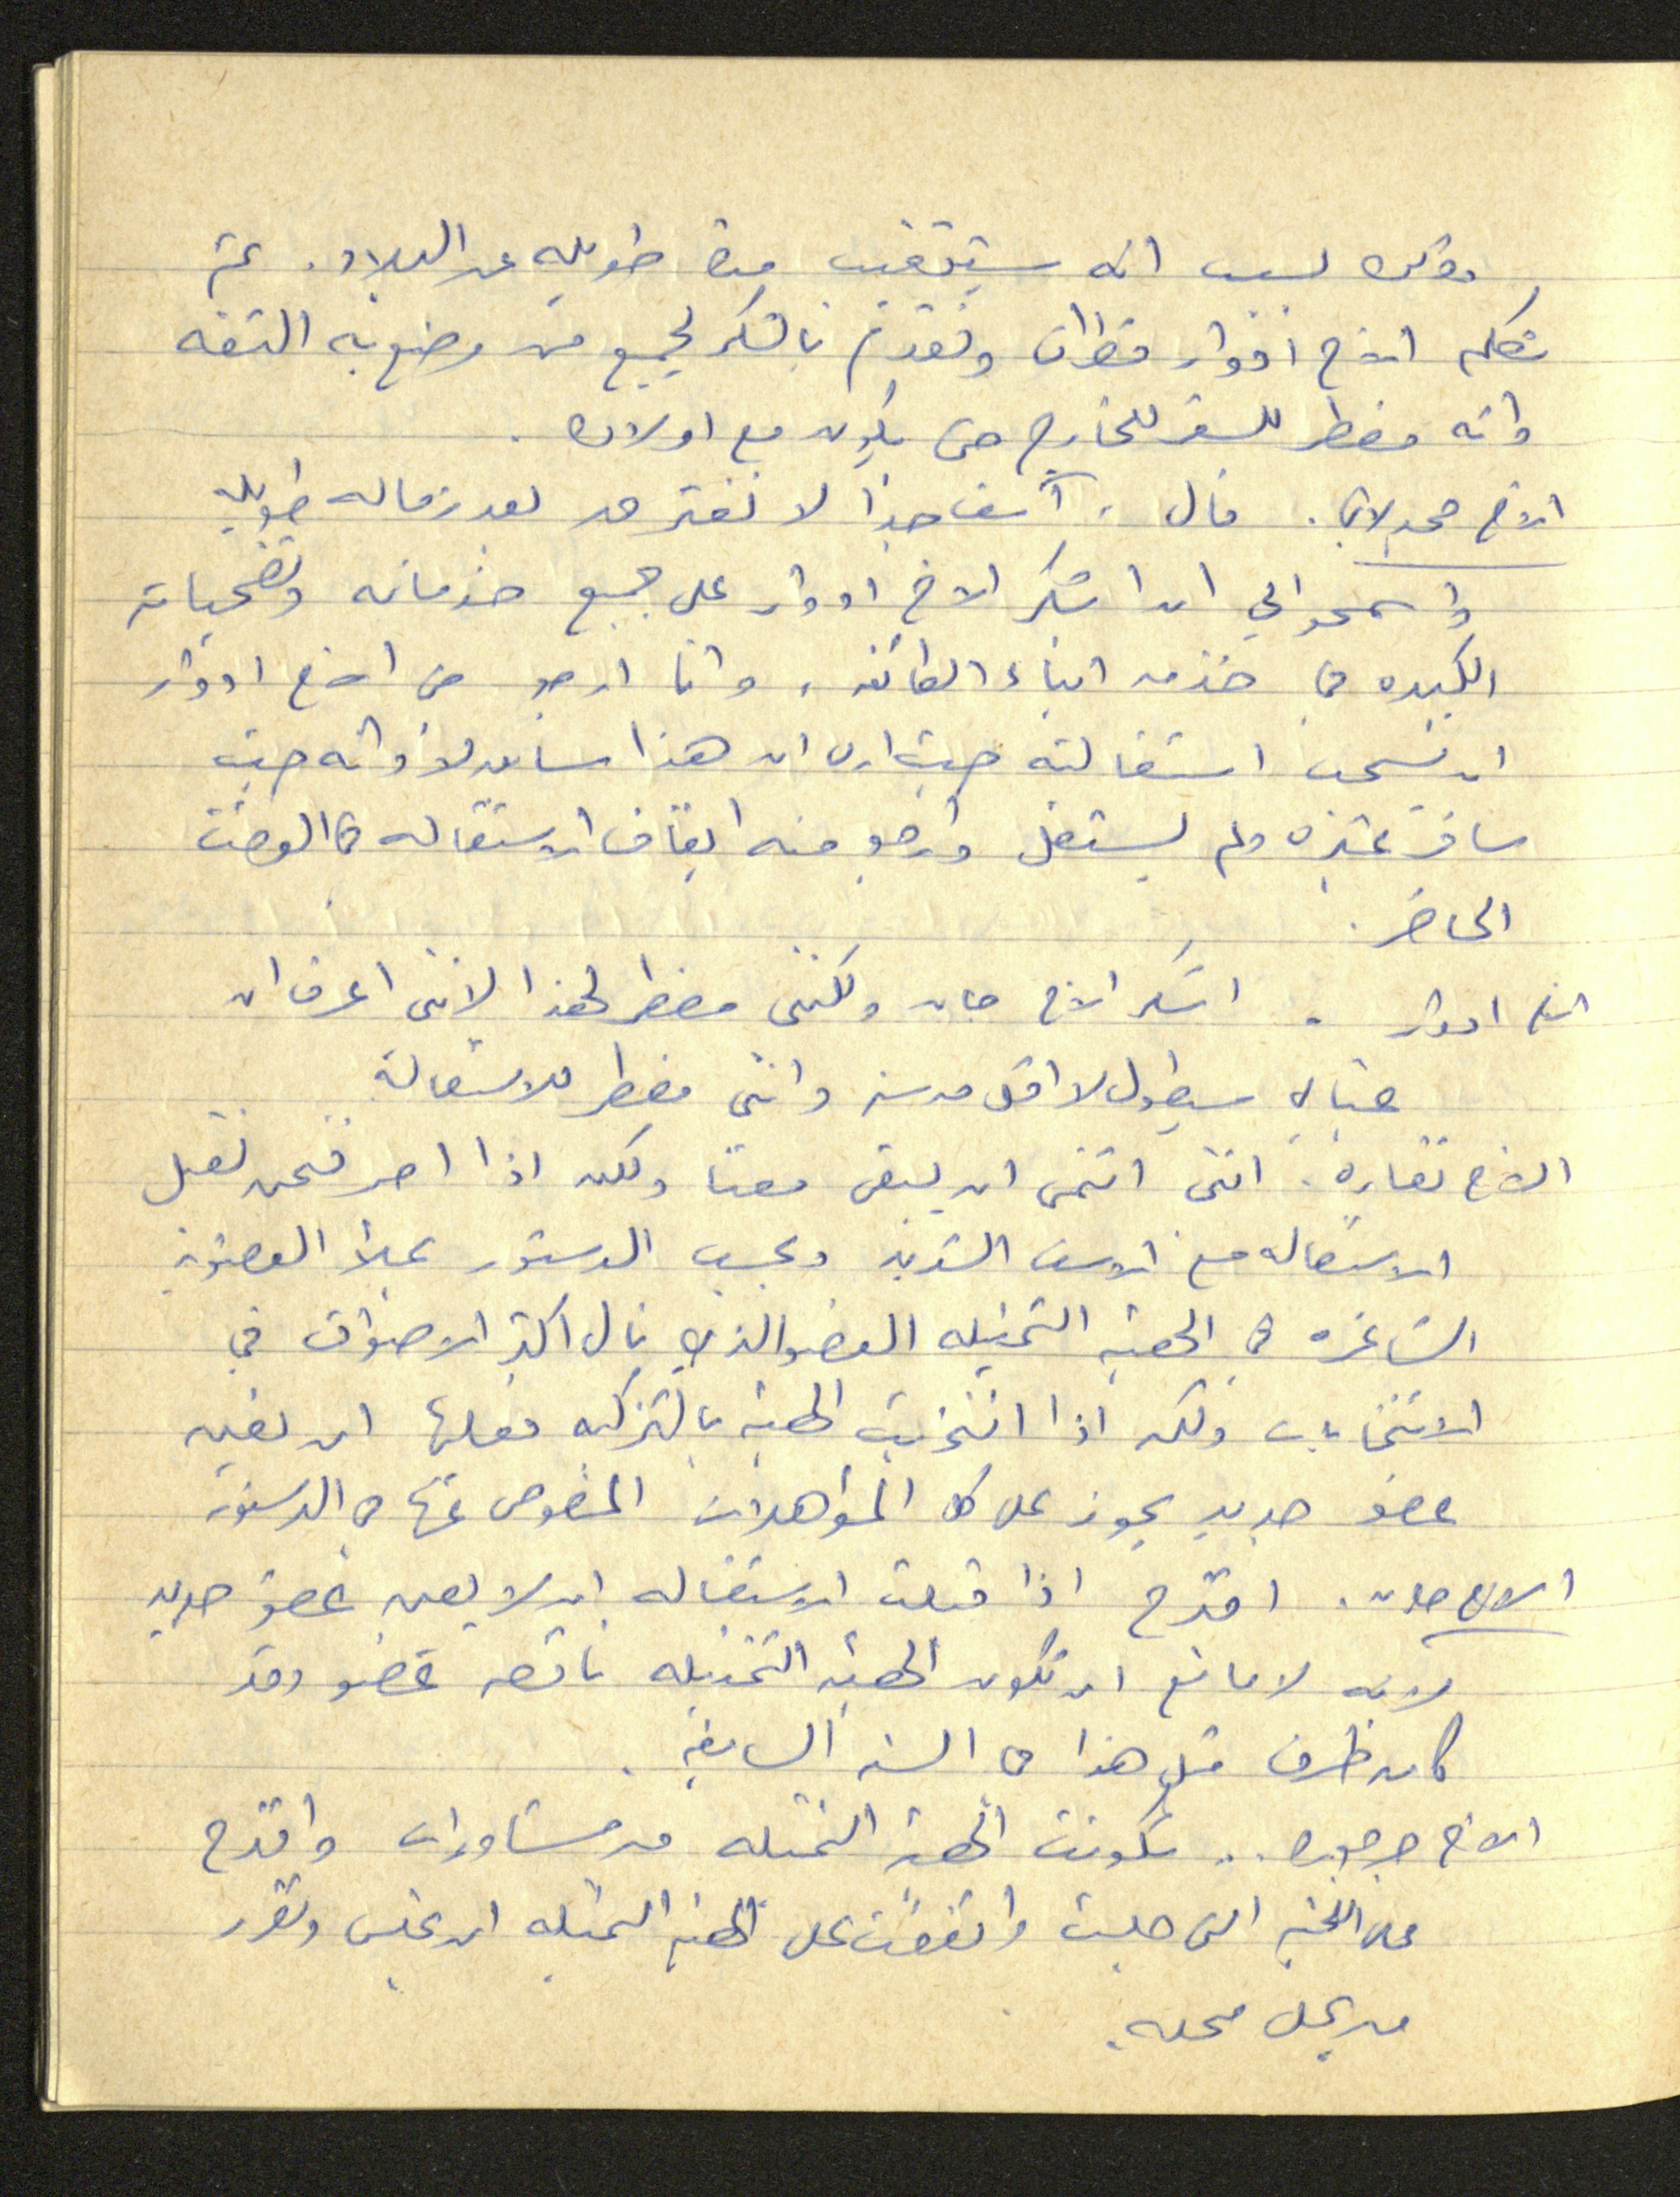 وذلك لسبب انه سيتغيب مدة طويله عن البلاد. ثم
تكلم الاخ ادوار قطران وتقدم بالشكر لجميع من وضع به الثقه
وانه مضطر للسفر للخارج حتى يكون مع اولاده.
الاخ . قال، آسف جدا لا نفترق بعد زماله طويله
واسمحوا لي ان اشكر الاخ ادوار على جميع خدماته وتضحياته
الكبيره في خدمه ابناء الطائفه، وانا ارجو من اخ ادوار
ان يسحب استقالته حيث ارى ان هذا سابق لاوانه حيث
سافر غيره ولم يستقل وارجو منه ايقاف الاستقاله في الوقت
الحاضر.
الاخ ادوار. اشكر الاخ جان ولكنني مضطر لهذا لانني اعرف ان
غيابي سيطول لا اقل من سنه وانني مضطر للاستقالة
الاخ نقاره. انني اتمنى ان يبقى معنا ولكن اذا اصر فنحن نقبل
الاستقاله مع الاسف الشديد وبحسب الدستور يملأ العضويه
الشاغره في الهيئه التمثيله العضو الذي نال اكثر الاصوات في
الانتخابات ولكن اذا انتخبت الهيئه بالتزكيه فعليها ان تعين
عضو جديد يحوز على كل المؤاهلات المنصوص عنها في الدستور
الاخ جان. اقترح اذا قبلت الاستقاله ان لا يعين عضو جديد
لانه لا مانع ان تكون الهيئه التمثيله ناقصه عضو وقد
كان ظرف مثل هذا في السنه السابقه.
الاخ .. تكونت الهيئه التمثيله من مشاورات واقترح
على اللجنه التي جلست واتفقت على الهيئه التمثيله ان تجلس وتقرر
من يحل محله.